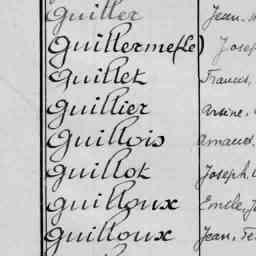 Guiller Jean
Guillerme (Le) Josep
Guillet Francis,
Guillier Arsène,
Guillois Arnaud,
Guillot Joseph,
Guilloux Emile, J
Guilloux Jean, Fe